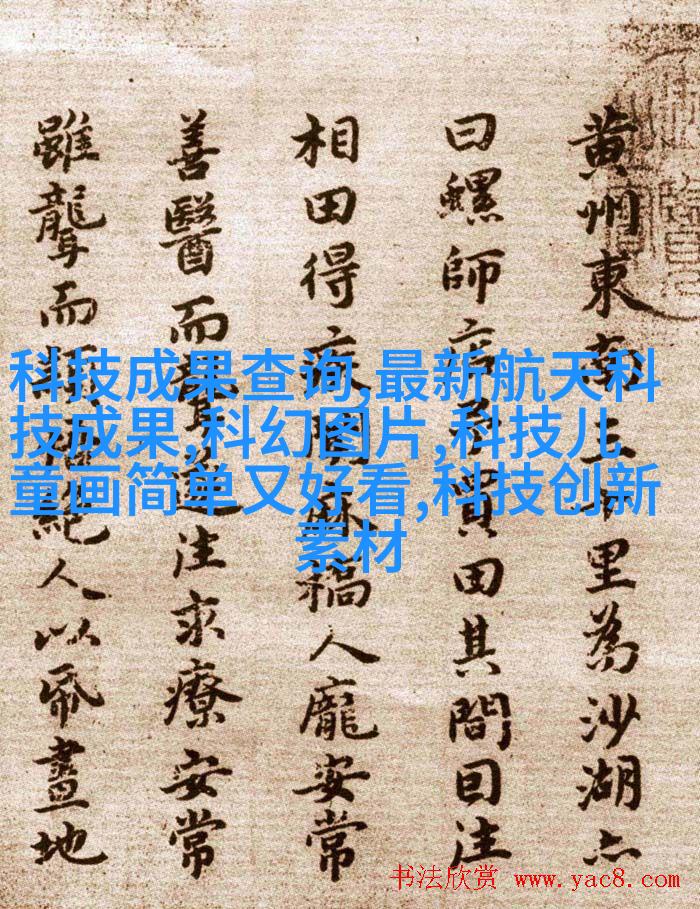 黄州東南三十里為沙湖亦
曰螺師店予買田其間因往
相田得疾聞麻橋人龐安常
善醫而聾遂往求療安常
雖聾而絶人以紙畫地
科技成果查询,最新航天科
技成果,科幻图片,科技儿
童画简单又好看,科技创新
素材
书法欣赏 www.yac8.com